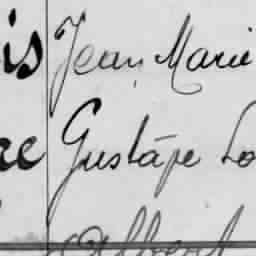 is Jean Marie
re Gustave Lo
Albert